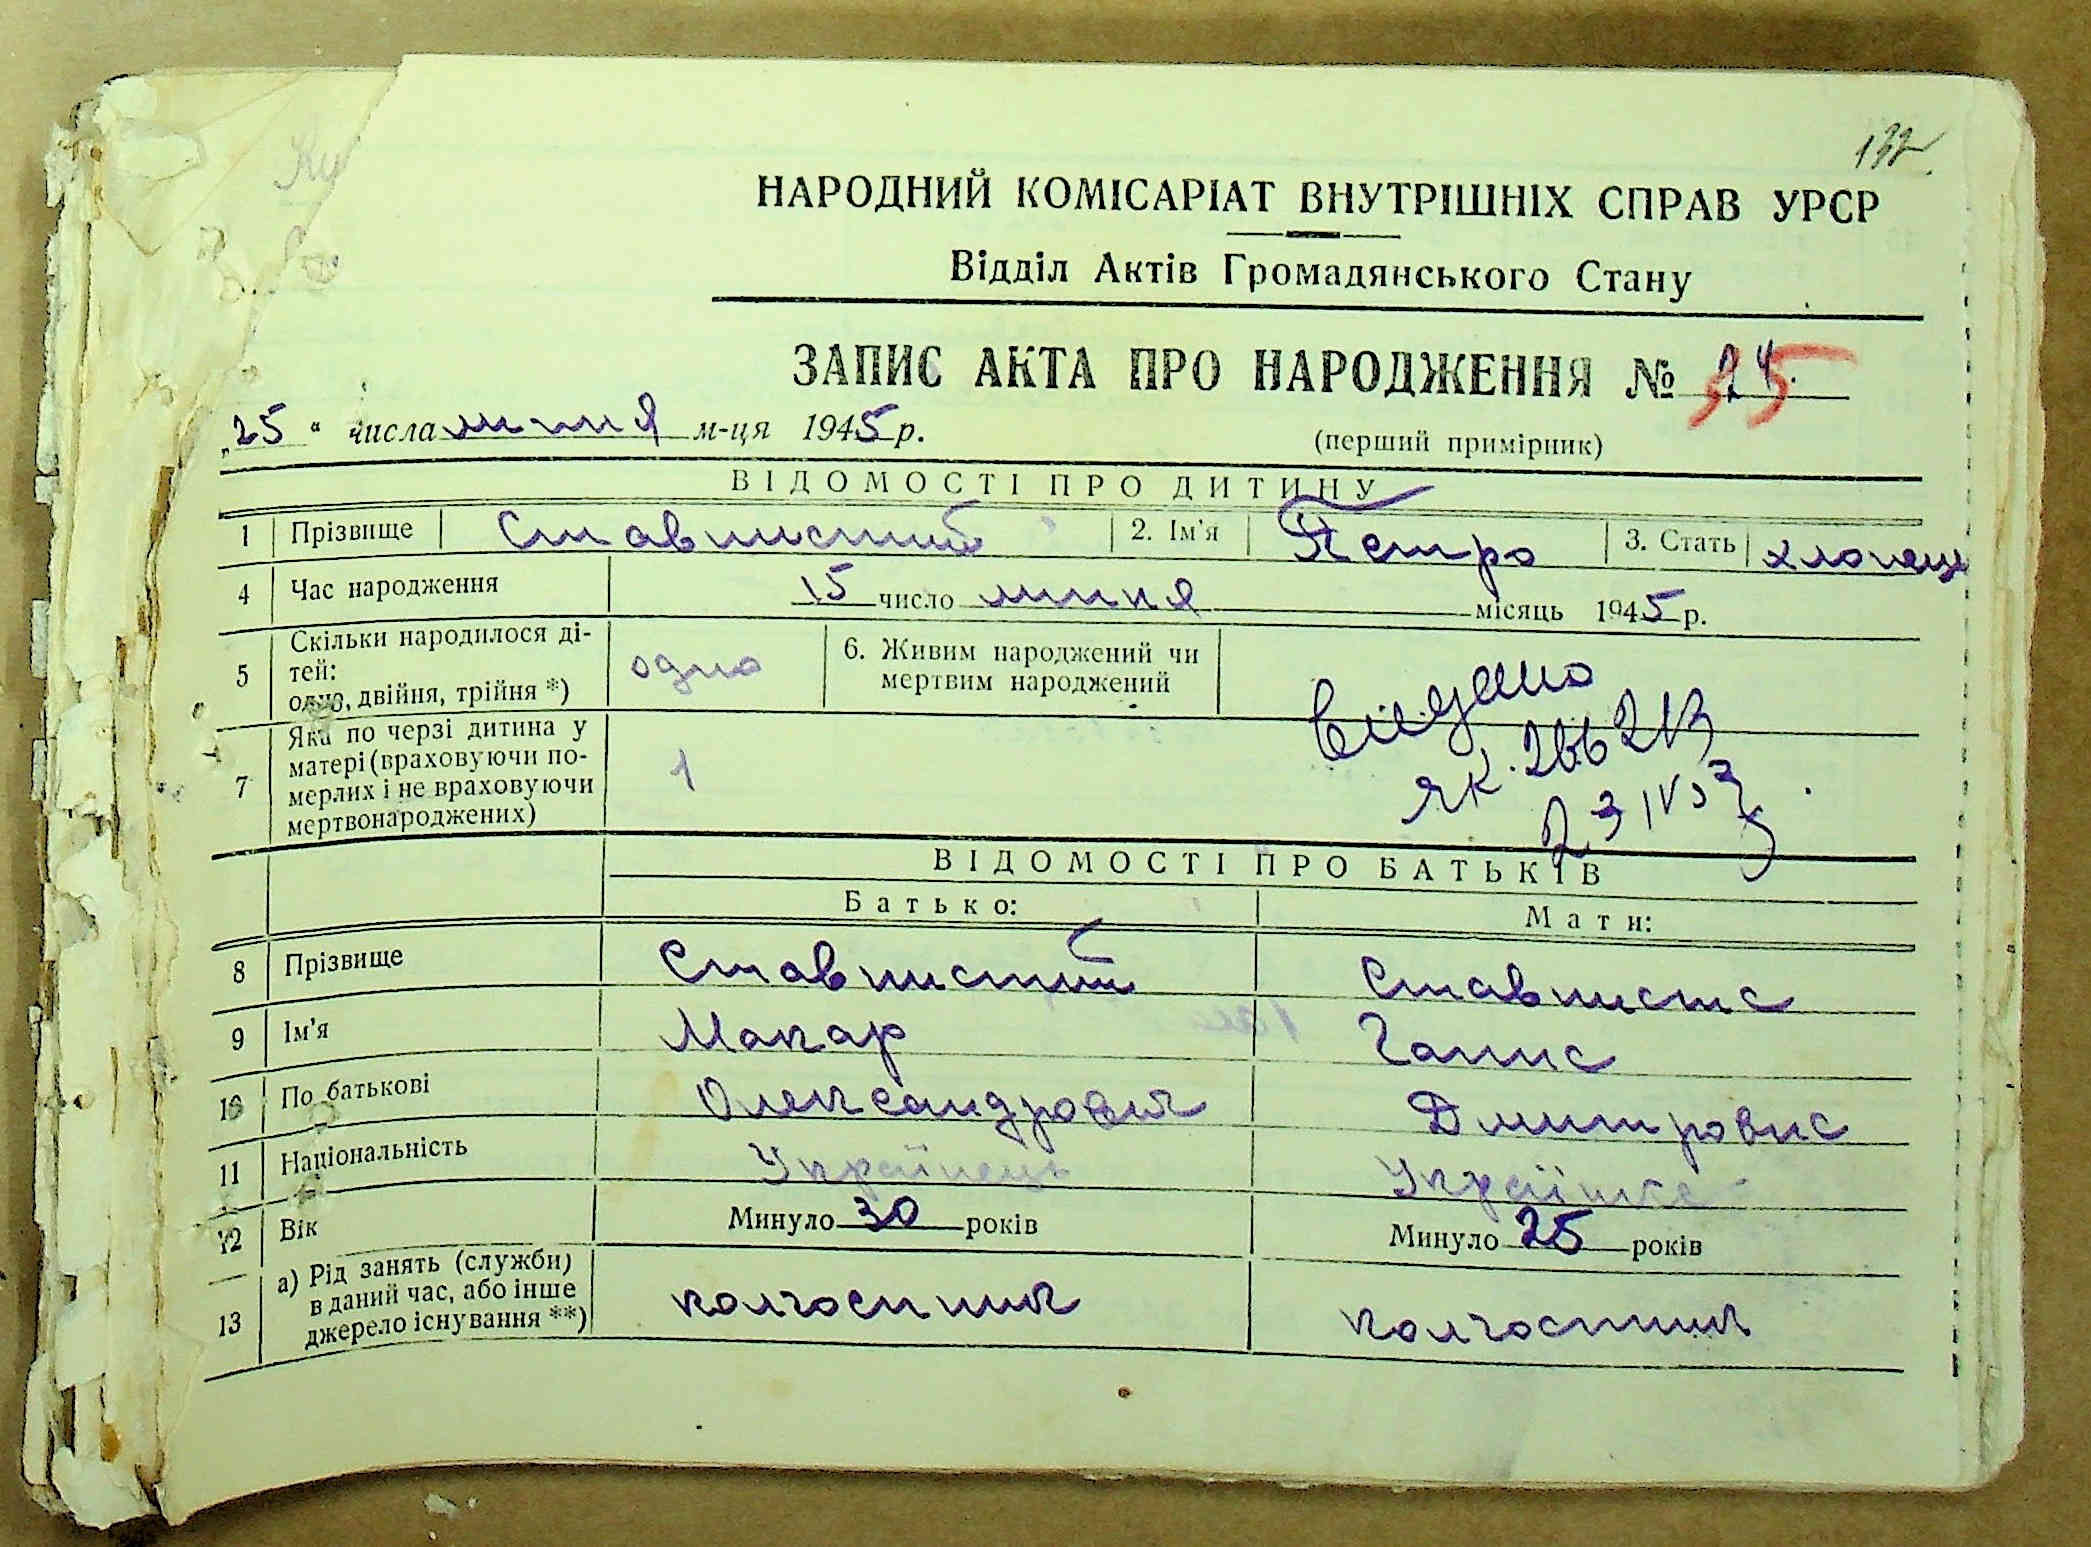 132
НАРОДНИЙ КОМІСАРІАТ ВНУТРІШНІХ СПРАВ УРСР
Відділ Актів Громадянського Стану
ЗАПИС АКТА ПРО НАРОДЖЕННЯ № 35
„25" числа липня м-ця 1945 р.
(перший примірник)
ВІДОМОСТІ ПРО ДИТИНУ
1 Прізвище Ставнистий 2. Ім'я Петро 3. Стать хлопець
4 Час народження 15 число липня місяць 1945 р.
5 Скільки народилося ді-
тей:
одно, двійня, трійня *) одно
6. Живим народжений чи
мертвим народжений
7 Яка по черзі дитина у
матері (враховуючи по-
мерлих і не враховуючи
мертвонароджених) 1
Видано
ЯК
ВІДОМОСТІ ПРО БАТЬКІВ
Батько: Мати:
8 Прізвище Ставнистий Ставниста
9 Ім'я Макар Ганна
10 По батькові Олександрович Дмитровна
11 Національність Українець Українка
12 Вік Минуло 30 років Минуло 25 років
13 а) Рід занять (служби)
в даний час, або інше
джерело існування **) колгоспник колгоспник